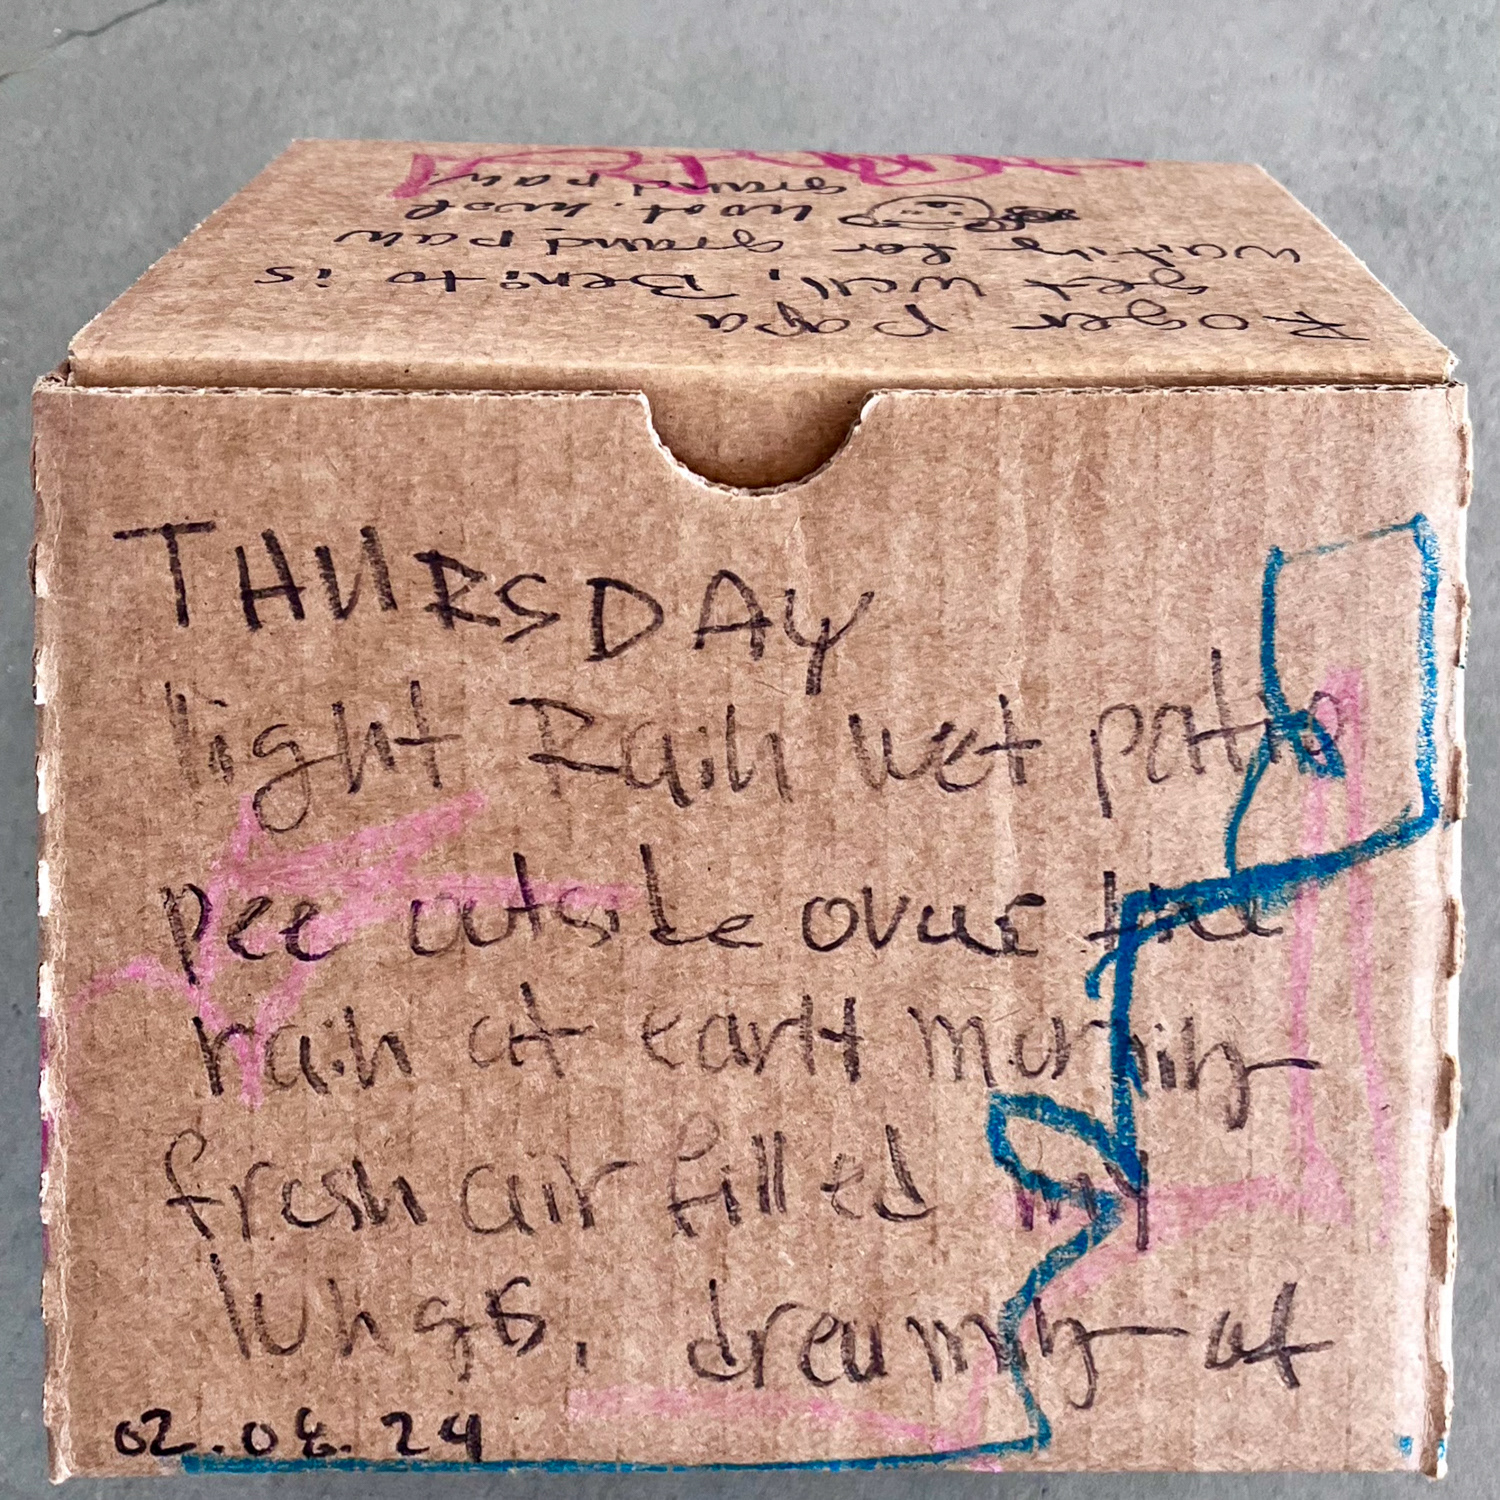 Roger Papa
get well, Benito is
waiting for grand paw
woof. woof
grand paw.
THURSDAY
light Rain wet patio
pee outside over the
rain at early morning
fresh air filled my
lungs, dreaming at
02.08.24